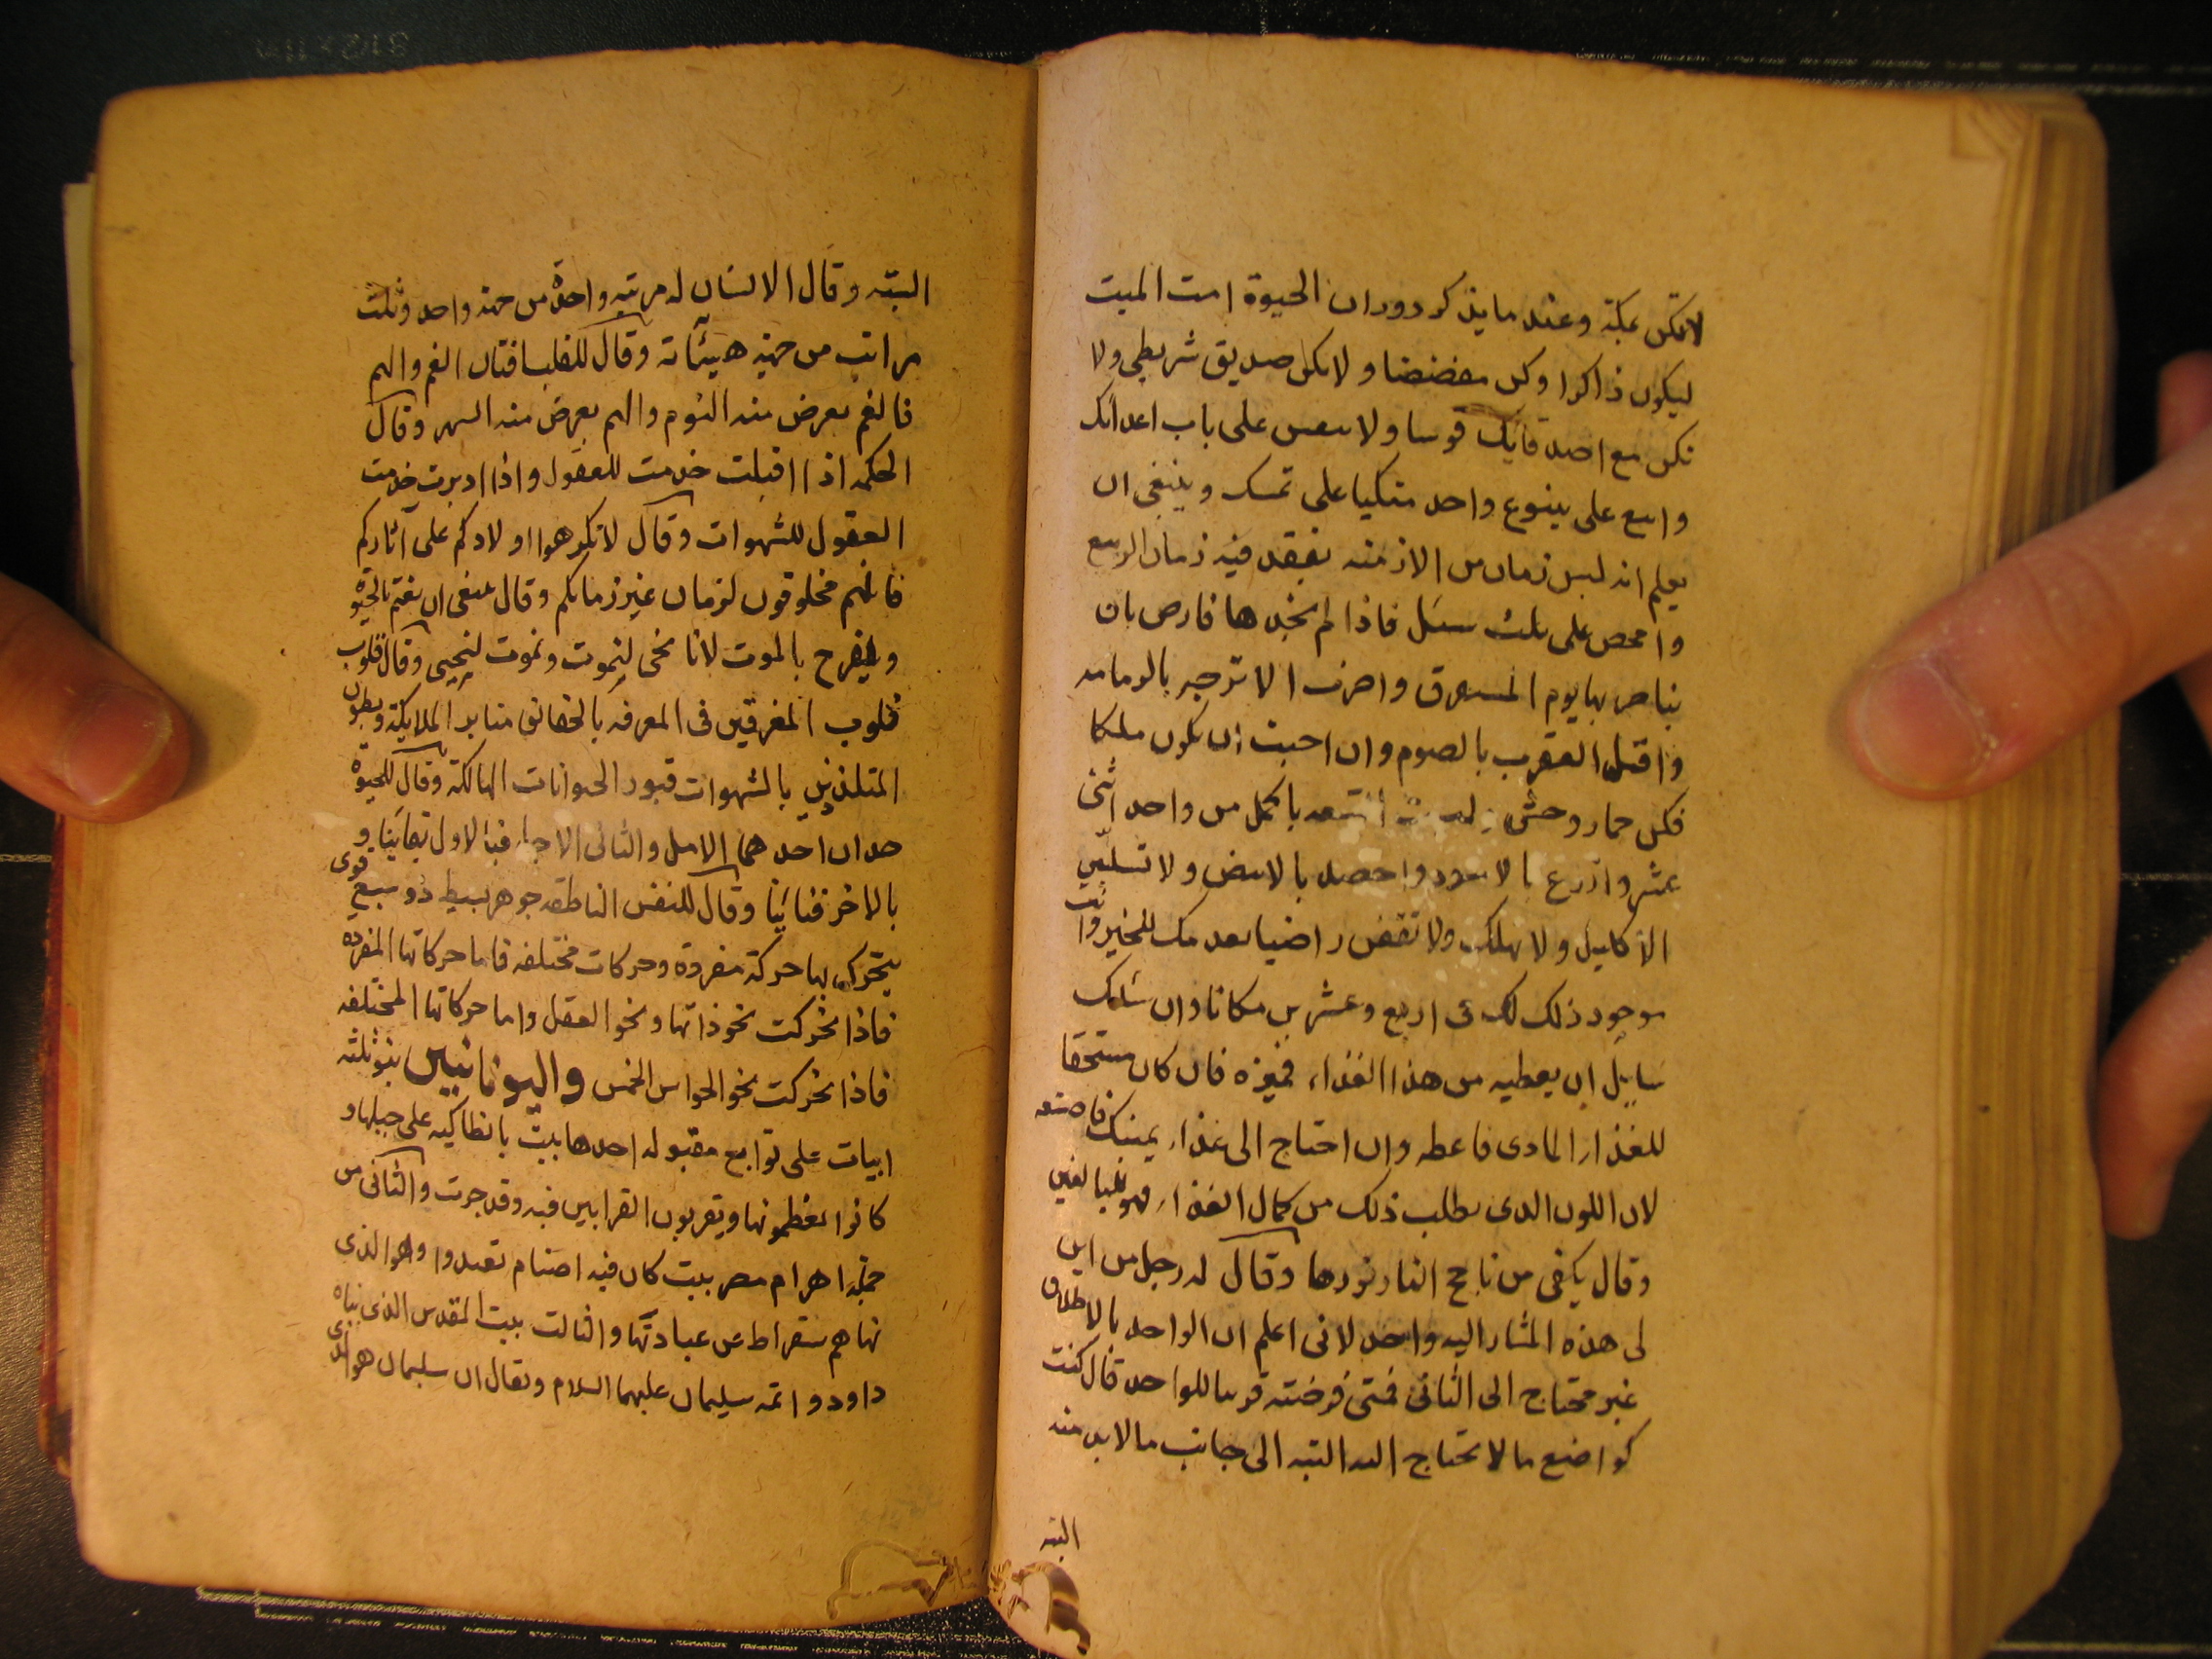 لاتكن عكبة وعند ما يذكر دوران الحيوة امت الميت
ليكون ذاكرا وكن مفضضا ولا تكن صديق شريطي ولا
تكن مع اصدقائك قوسا ولا تنعس على باب اعدائك
واثبت على ينبوع واحد متكيا على تمسك وينبغى ان
يعلم انه ليس زمان من الازمنه يفقد فيه زمان الربيع
وافحص على ثلث سبل فاذا لم تجدها فارض بان
تنام بها يوم المستغرق واضرب الاترجه بالرمانه
واقتل العقرب بالصوم وان احببت ان تكون ملكا
فكن حمار وحش باكمل من واحد اثنى
عشر وازرع بالاسود واحصد بالابيض ولا تسلبن
الاكاليل ولا تهلك ولا تقفن راضيا بعدمك للخير وانت
موجود ذلك لك فى اربع وعشرين مكانا وان سئلك
سايل ان يعطيه من هذا الغذاء فميزه فان كان مستحقا
للغذاء المادى فاعطه وان احتاج الى غذاء يمينك فاصنعه
لان اللون الذى يطلب ذلك من كمال الغذاء فهو للبالغين
وقال يكفى من تاجج النار نورها وقال له رجل من اين
لى هذه المشار اليه واحد لانى اعلم ان الواحد بالاطلاق
غير محتاج الى الثانى فمتى فرضته قرينا للواحد قال كنت
كواضع ما لا يحتاج اليه البته الى جانب ما لا بد منه
البته
البته وقال الانسان له مرتبه واحدة من جهة واحد وثلث
مراتب من جهة هيئاته وقال للقلب افتان الغم والهم
فالغم يعرض منه النوم والهم يعرض منه السهر وقال
الحكمه اذا اقبلت خدمت للعقول واذا ادبرت خدمت
العقول للشهوات وقال لا تكرهوا اولادكم على آثاركم
فانهم مخلوقون لزمان غير زمانكم وقال ينبغى ان يغتم بالحيوة
ويفرح بالموت لانا نحيى لنموت ونموت لنحيى وقال قلوب
قلوب المغرقين فى المعرفه بالحقائق منابر الملايكة وبطون
المتلذذين بالشهوات قبور الحيوانات الهالكة وقال للحيوة
حدان احدهما الامل والثانى الاجل فبالاول بقائنا و
بالاخر فنائنا وقال للنفس الناطقه جوهر بسيط ذو سبع قوى
يتحرك بها حركة مفردة وحركات مختلفه فاما حركاتها المفرده
فاذا تحركت نحو ذاتها ونحو العقل واما حركاتها المختلفه
فاذا تحركت نحو الحواس الخمس واليونانيين بنو ثلثه
ابيات على توابع مقبوله احدها بيت بانطاكيه على جبلها و
كانوا يعظمونها ويقربون القرابين فيه وقد خربت والثانى من
جملة اهرام مصر بيت كان فيه اصنام تعبدوا وهو الذى
نهاهم سقراط عن عبادتها والثالث بيت المقدس الذى بناه
داود واتمه سليمان عليهما السلام ويقال ان سليمان هو الذى